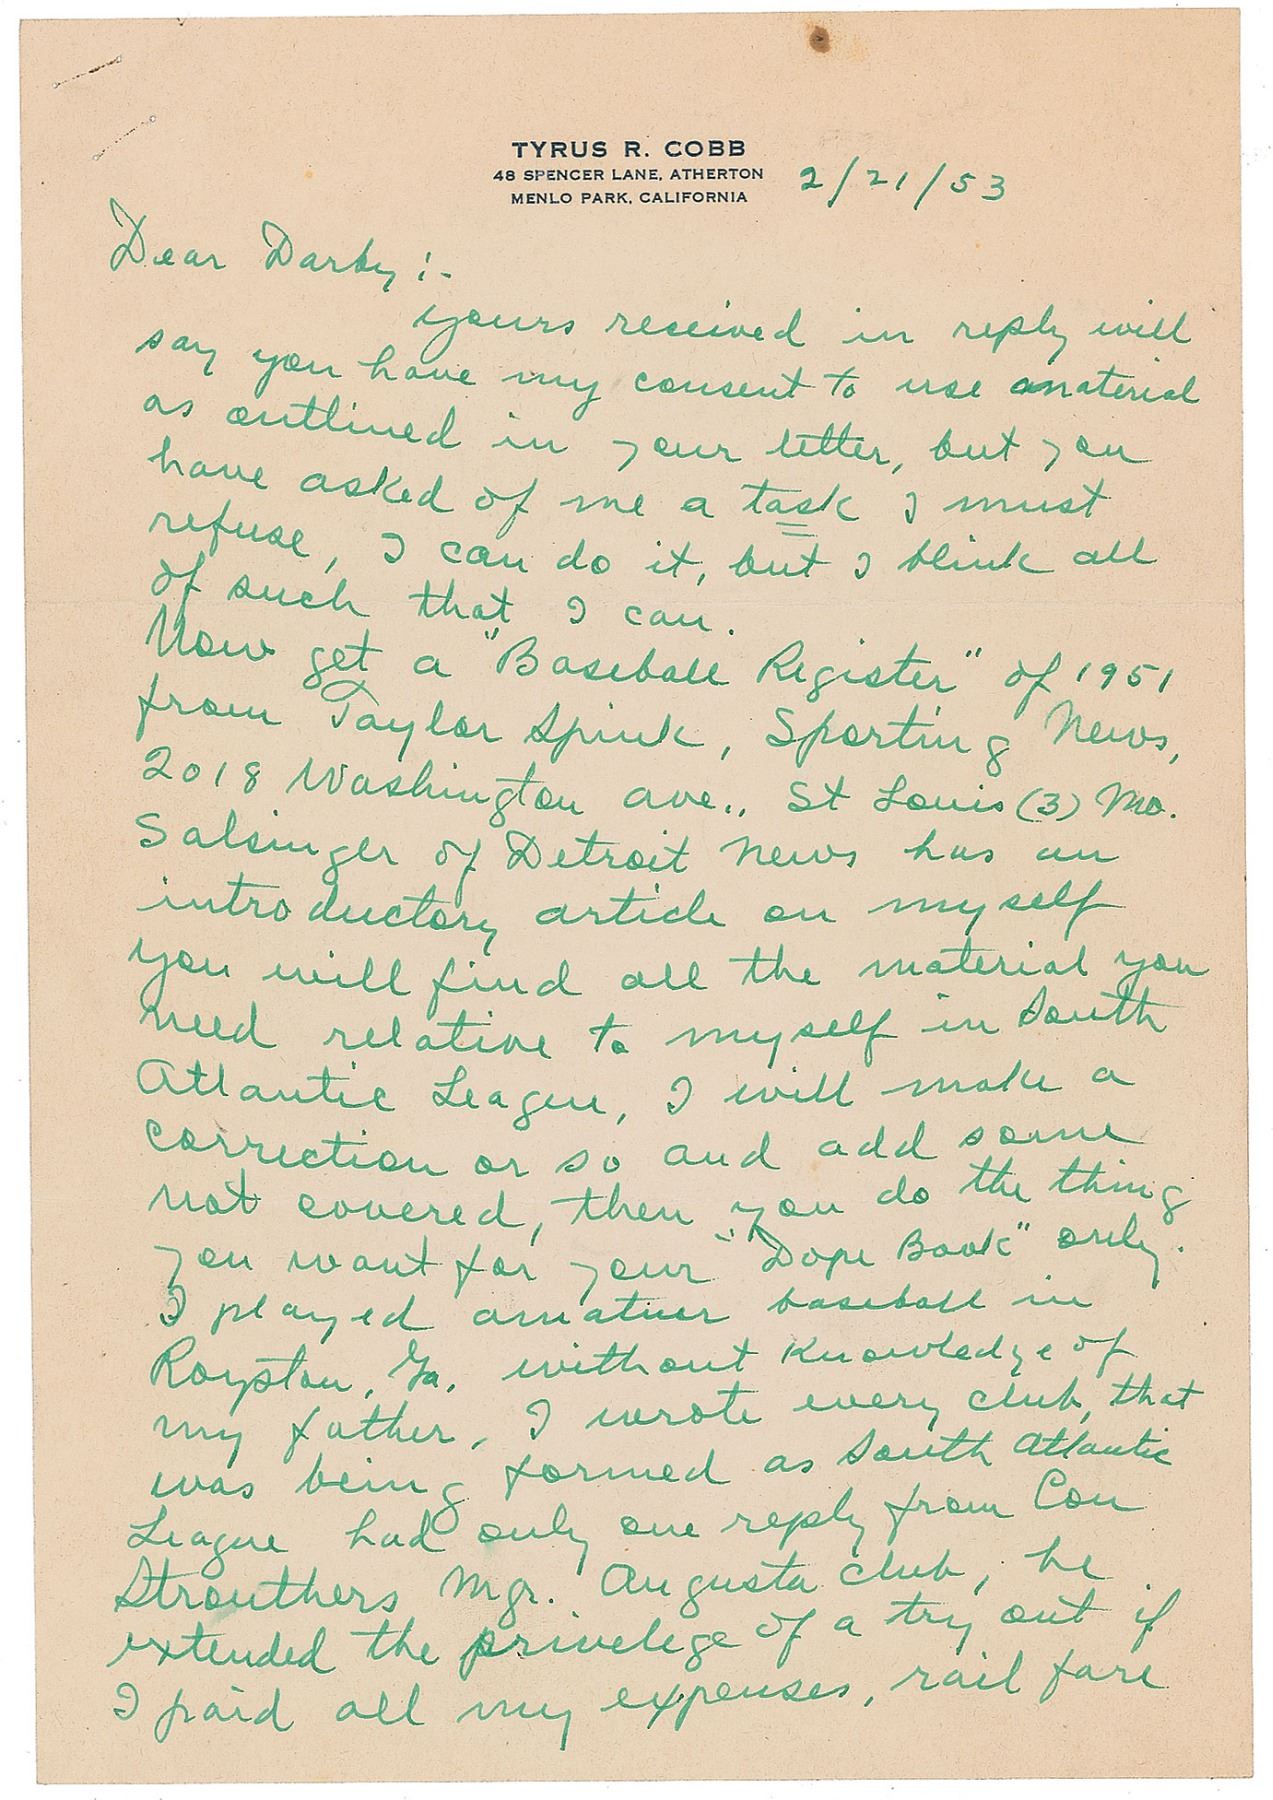 TYRUS R. COBB
48 SPENCER LANE, ATHERTON
MENLO PARK, CALIFORNIA
2/21/53
Dear Darby :-
yours received in reply will
say you have my consent to use material
as outlined in your letter, but you
have asked of me a task I must
refuse, I can do it, but I blink all
of such that I can.
Now get a "Baseball Register" of 1951
from Taylor Spink, Sporting News,
2018 Washington ave., St Louis (3) Mo.
Salsinger of Detroit News has an
introductory article on myself
you will find all the material you
need relative to myself in South
Atlantic League, I will make a
correction or so and add some
not covered, then you do the thing
you want for your "Dope Book" only.
I played amatuer baseball in
Royston, Ga. without knowledge of
my father, I wrote every club, that
was being formed as South Atlantic
League had only one reply from Con
Strouthers Mgr. Augusta club, he
extended the privelege of a try out if
I paid all my expenses, rail fare